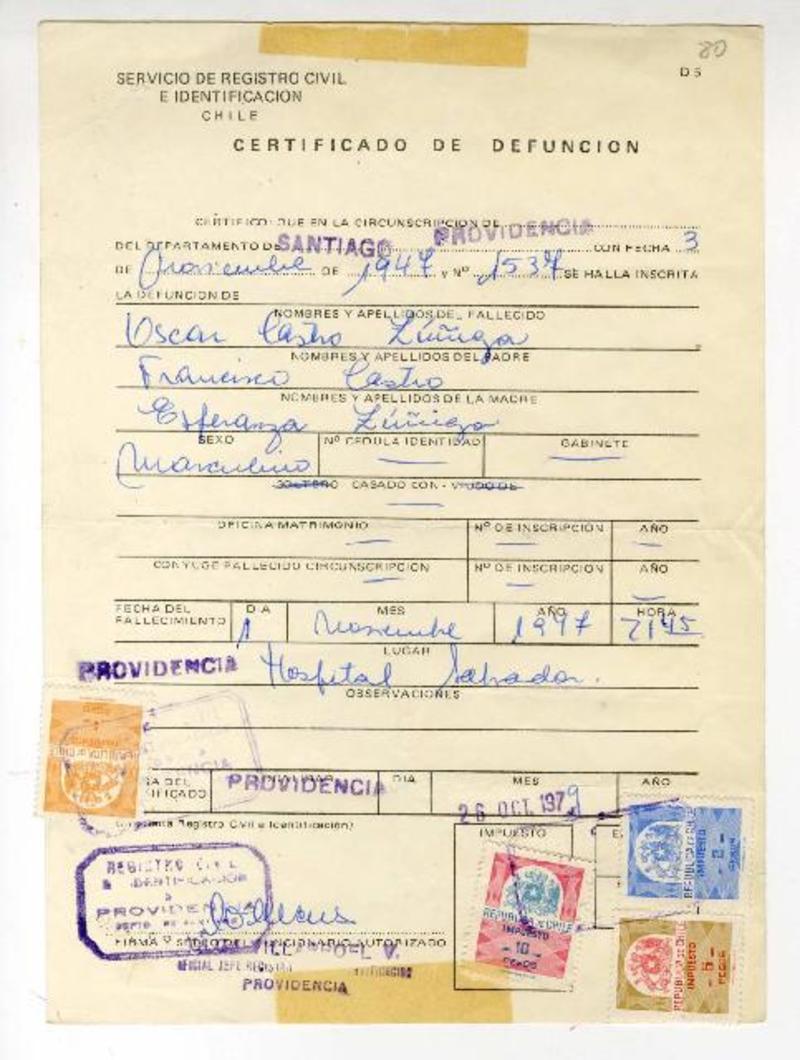 80
D 5
SERVICIO DE REGISTRO CIVIL
E IDENTIFICACION
CHILE
CERTIFICADO DE DEFUNCION
CERTIFICO: QUE EN LA CIRCUNSCRIPCION DE PROVIDENCIA
DEL DEPARTAMENTO DE SANTIAGO CON FECHA 3
DE Noviembre DE 1947 Y Nº 1537 SE HALLA INSCRITA
LA DEFUNCION DE
NOMBRES Y APELLIDOS DEL FALLECIDO
Oscar Castro Zúñiga
NOMBRES Y APELLIDOS DEL PADRE
Francisco Castro
NOMBRES Y APELLIDOS DE LA MADRE
Esperanza Zúñiga
SEXO Nº CEDULA IDENTIDAD GABINETE
Masculino
SOLTERO CASADO CON - VIUDO DE
OFICINA MATRIMONIO Nº DE INSCRIPCION AÑO
CONYUGE FALLECIDO CIRCUNSCRIPCION Nº DE INSCRIPCION AÑO
FECHA DEL FALLECIMIENTO DIA MES AÑO HORA
1 Noviembre 1947 21:45
LUGAR
PROVIDENCIA Hospital Salvador.
OBSERVACIONES
DEL PROVIDENCIA DIA MES AÑO
26 OCT. 1979
Registro Civil e Identificación)
IMPUESTO
REGISTRO CIVIL
E IDENTIFICACION
PROVIDENCIA
FIRMA Y SELLO DEL FUNCIONARIO AUTORIZADO
V.
OFICIAL JEFE REGISTRO
PROVIDENCIA
REPUBLICA DE CHILE
IMPUESTO
10
PESOS
REPUBLICA DE CHILE
IMPUESTO
REPUBLICA DE CHILE
IMPUESTO
5
PESOS